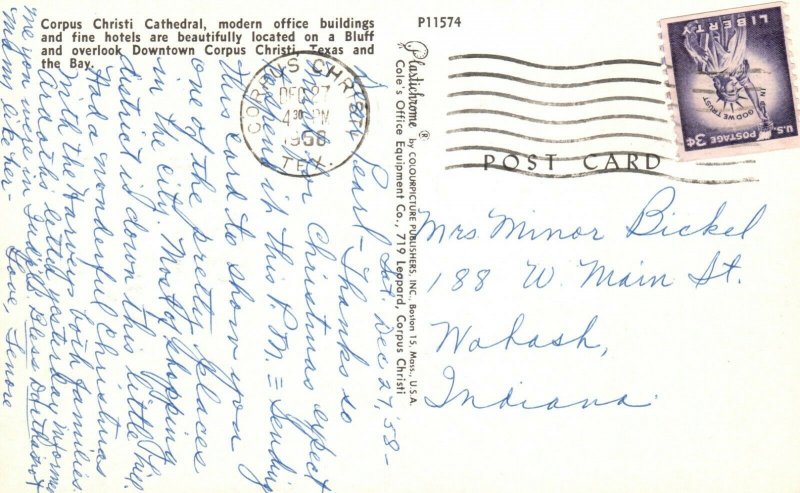 Corpus Christi Cathedral, modern office buildings
and fine hotels are beautifully located on a Bluff
and overlook Downtown Corpus Christi, Texas and
the Bay.
P11574
CORPUS CHRISTI
DEC 27
4 30 PM
1958
TEX.
U.S. POSTAGE 3¢
IN GOD WE TRUST
LIBERTY
POST CARD
Plastichrome ® by COLOURPICTURE PUBLISHERS, INC., Boston 15, Mass., U.S.A.
Cole's Office Equipment Co., 719 Leopard, Corpus Christi
Mrs Minor Bickel
188 W. Main St.
Wabash,
Indiana.
Sat Dec 27, '58-
Dear Pearl- Thanks so
for Christmas expect
to spend it this P.M. = Sending
this card to show you
one of the pretty places
in the city. Most of shopping
district is down this little hill
Had a wonderful Christmas
with the Harveys both families.
Ado's letter yesterday informed
me you were in
and my like her-
Love, Lenore